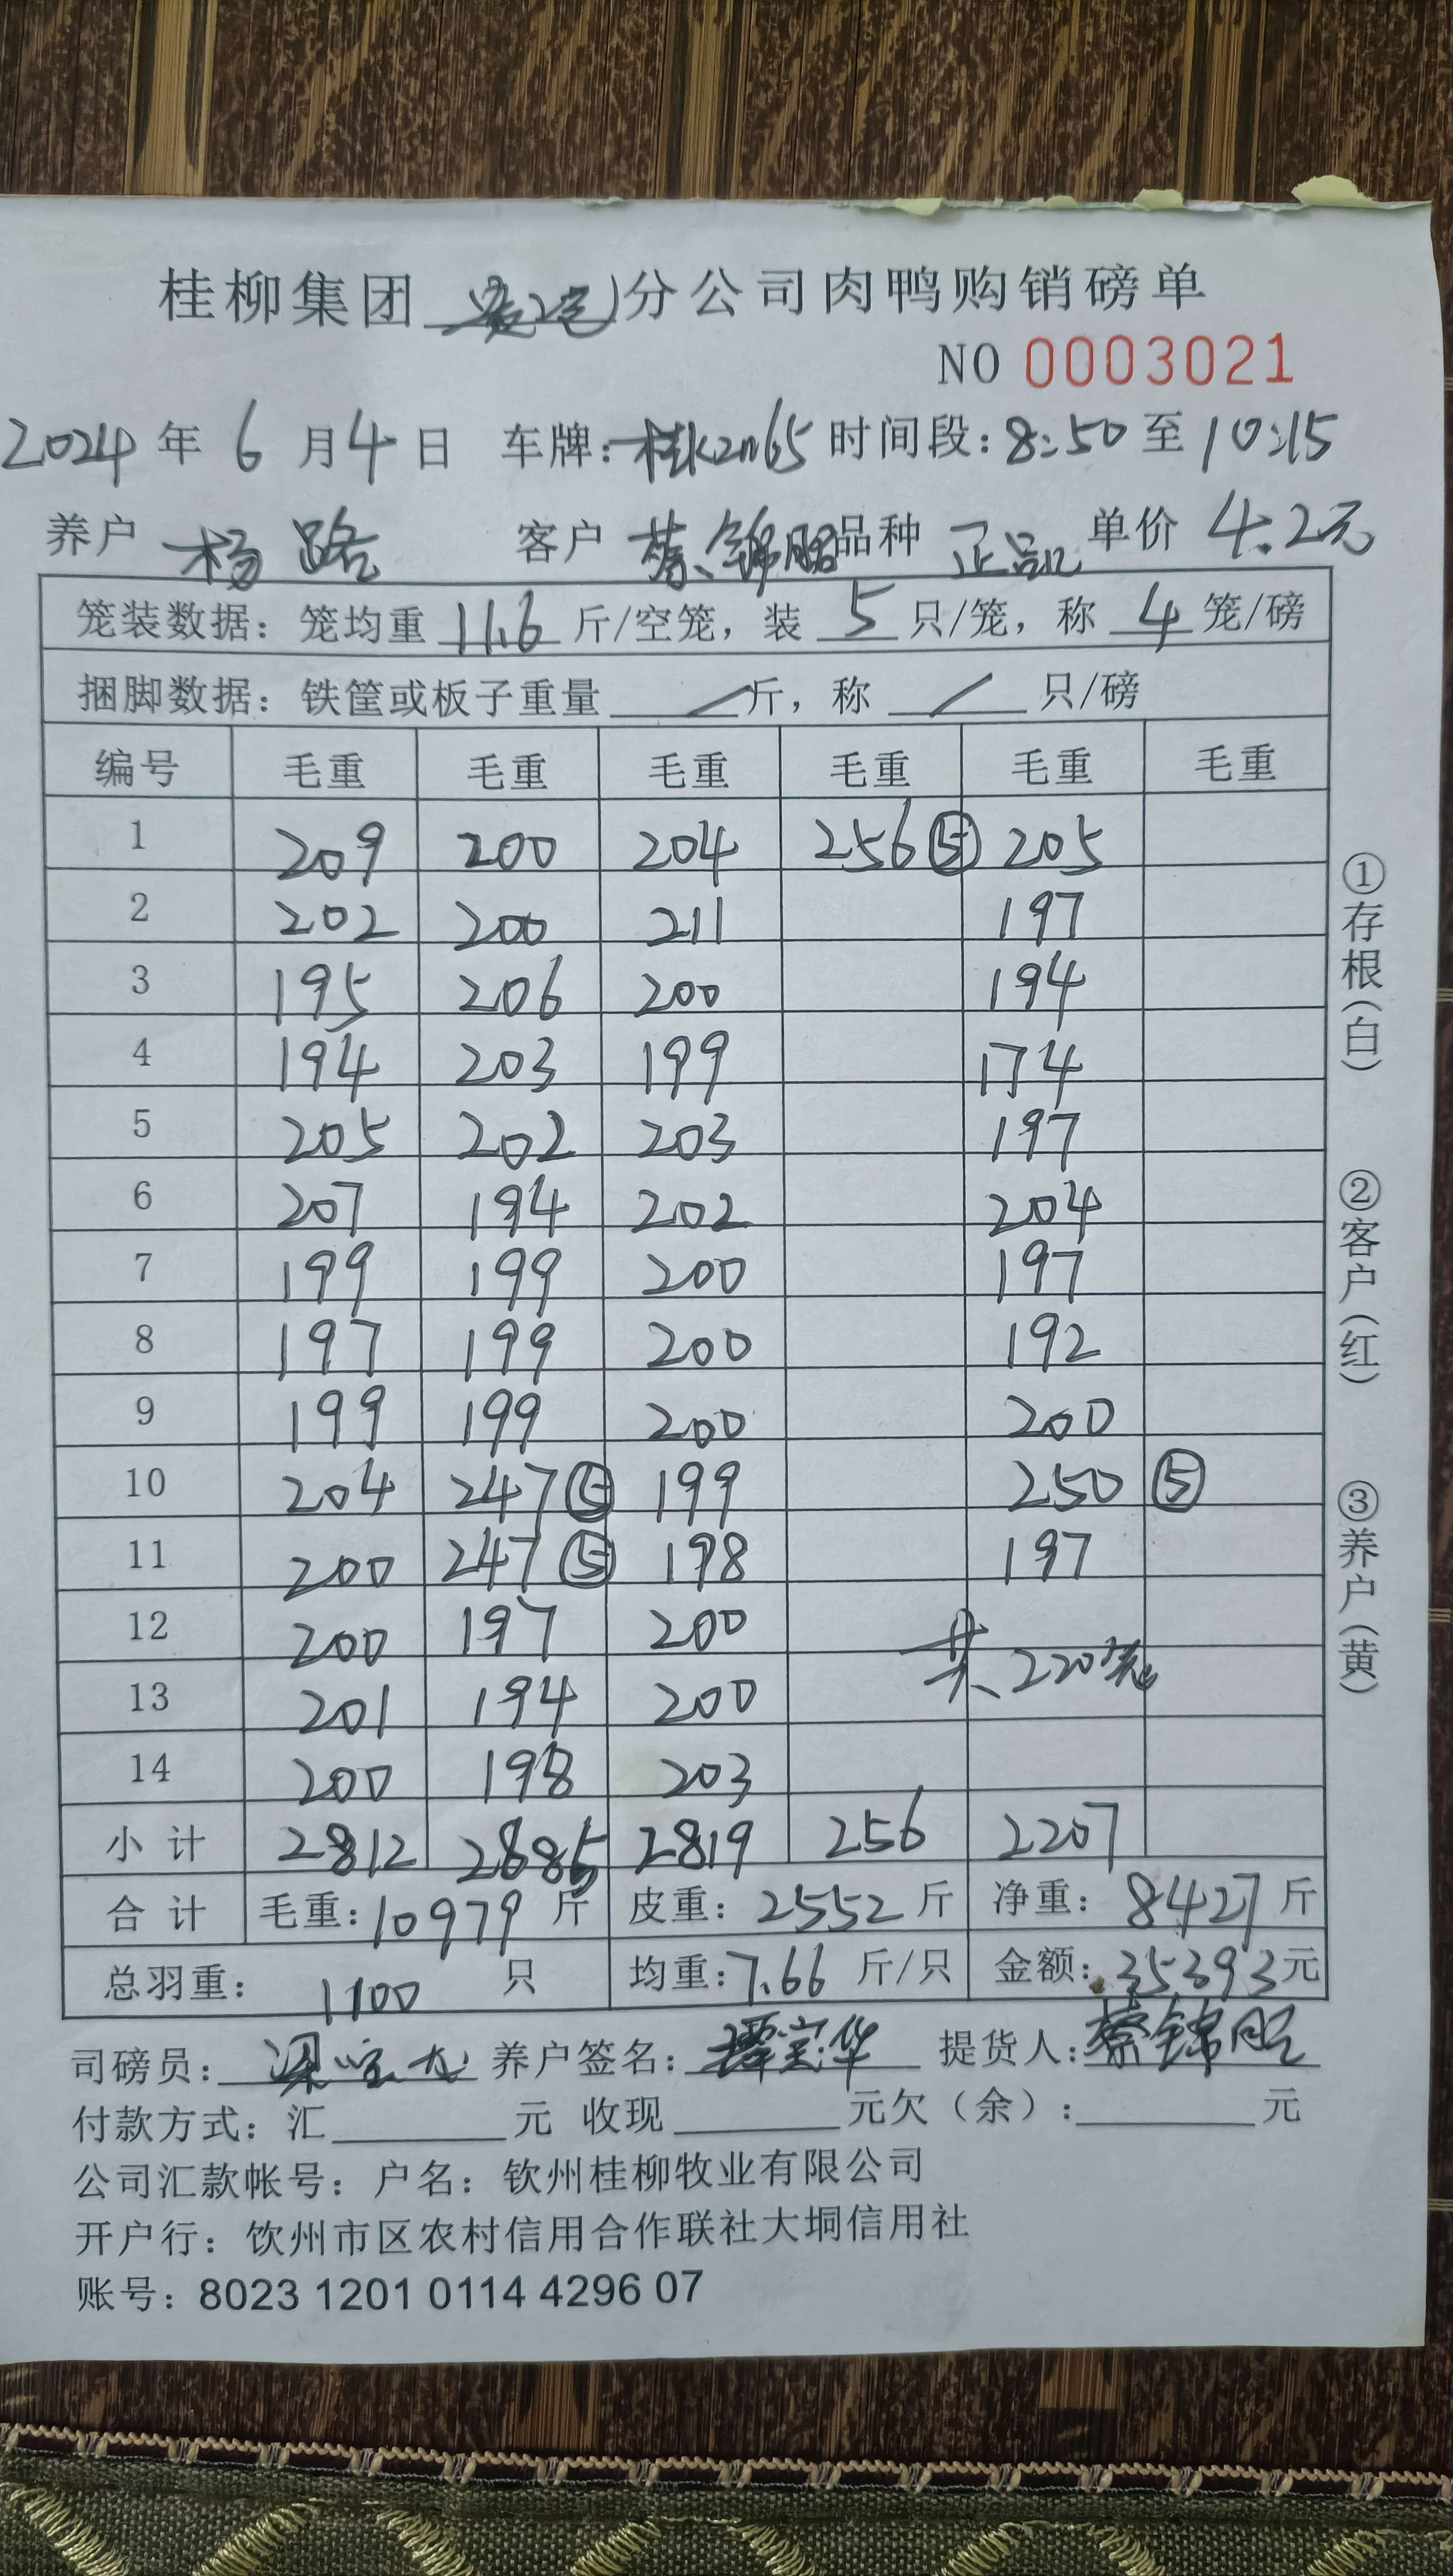 桂柳集团 分公司肉鸭购销磅单
NO 0003021
2024 年 6 月 4 日 车牌: 桂K2n65 时间段: 8:50 至 10:15
养户 杨路 客户 蔡锦昭 品种 正品 单价 4.2元
笼装数据: 笼均重 11.6 斤/空笼, 装 5 只/笼, 称 4 笼/磅
捆脚数据: 铁筐或板子重量 / 斤, 称 / 只/磅
编号 毛重 毛重 毛重 毛重 毛重 毛重
1 209 200 204 256⑤ 205
2 202 200 211 197
3 195 206 200 194
4 194 203 199 174
5 205 202 203 197
6 207 194 202 204
7 199 199 200 197
8 197 199 200 192
9 199 199 200 200
10 204 247⑤ 199 250⑤
11 200 247⑤ 198 197
12 200 197 200
共220笼
13 201 194 200
14 200 198 203
小计 2812 2885 2819 256 2207
合计 毛重: 10979 斤 皮重: 2552 斤 净重: 8427 斤
总羽重: 1100 只 均重: 7.66 斤/只 金额: 35393 元
司磅员: 养户签名: 谭宝华 提货人: 蔡锦昭
付款方式: 汇 元 收现 元欠（余）: 元
公司汇款帐号: 户名: 钦州桂柳牧业有限公司
开户行: 钦州市区农村信用合作联社大垌信用社
账号: 8023 1201 0114 4296 07
①存根（白）
②客户（红）
③养户（黄）